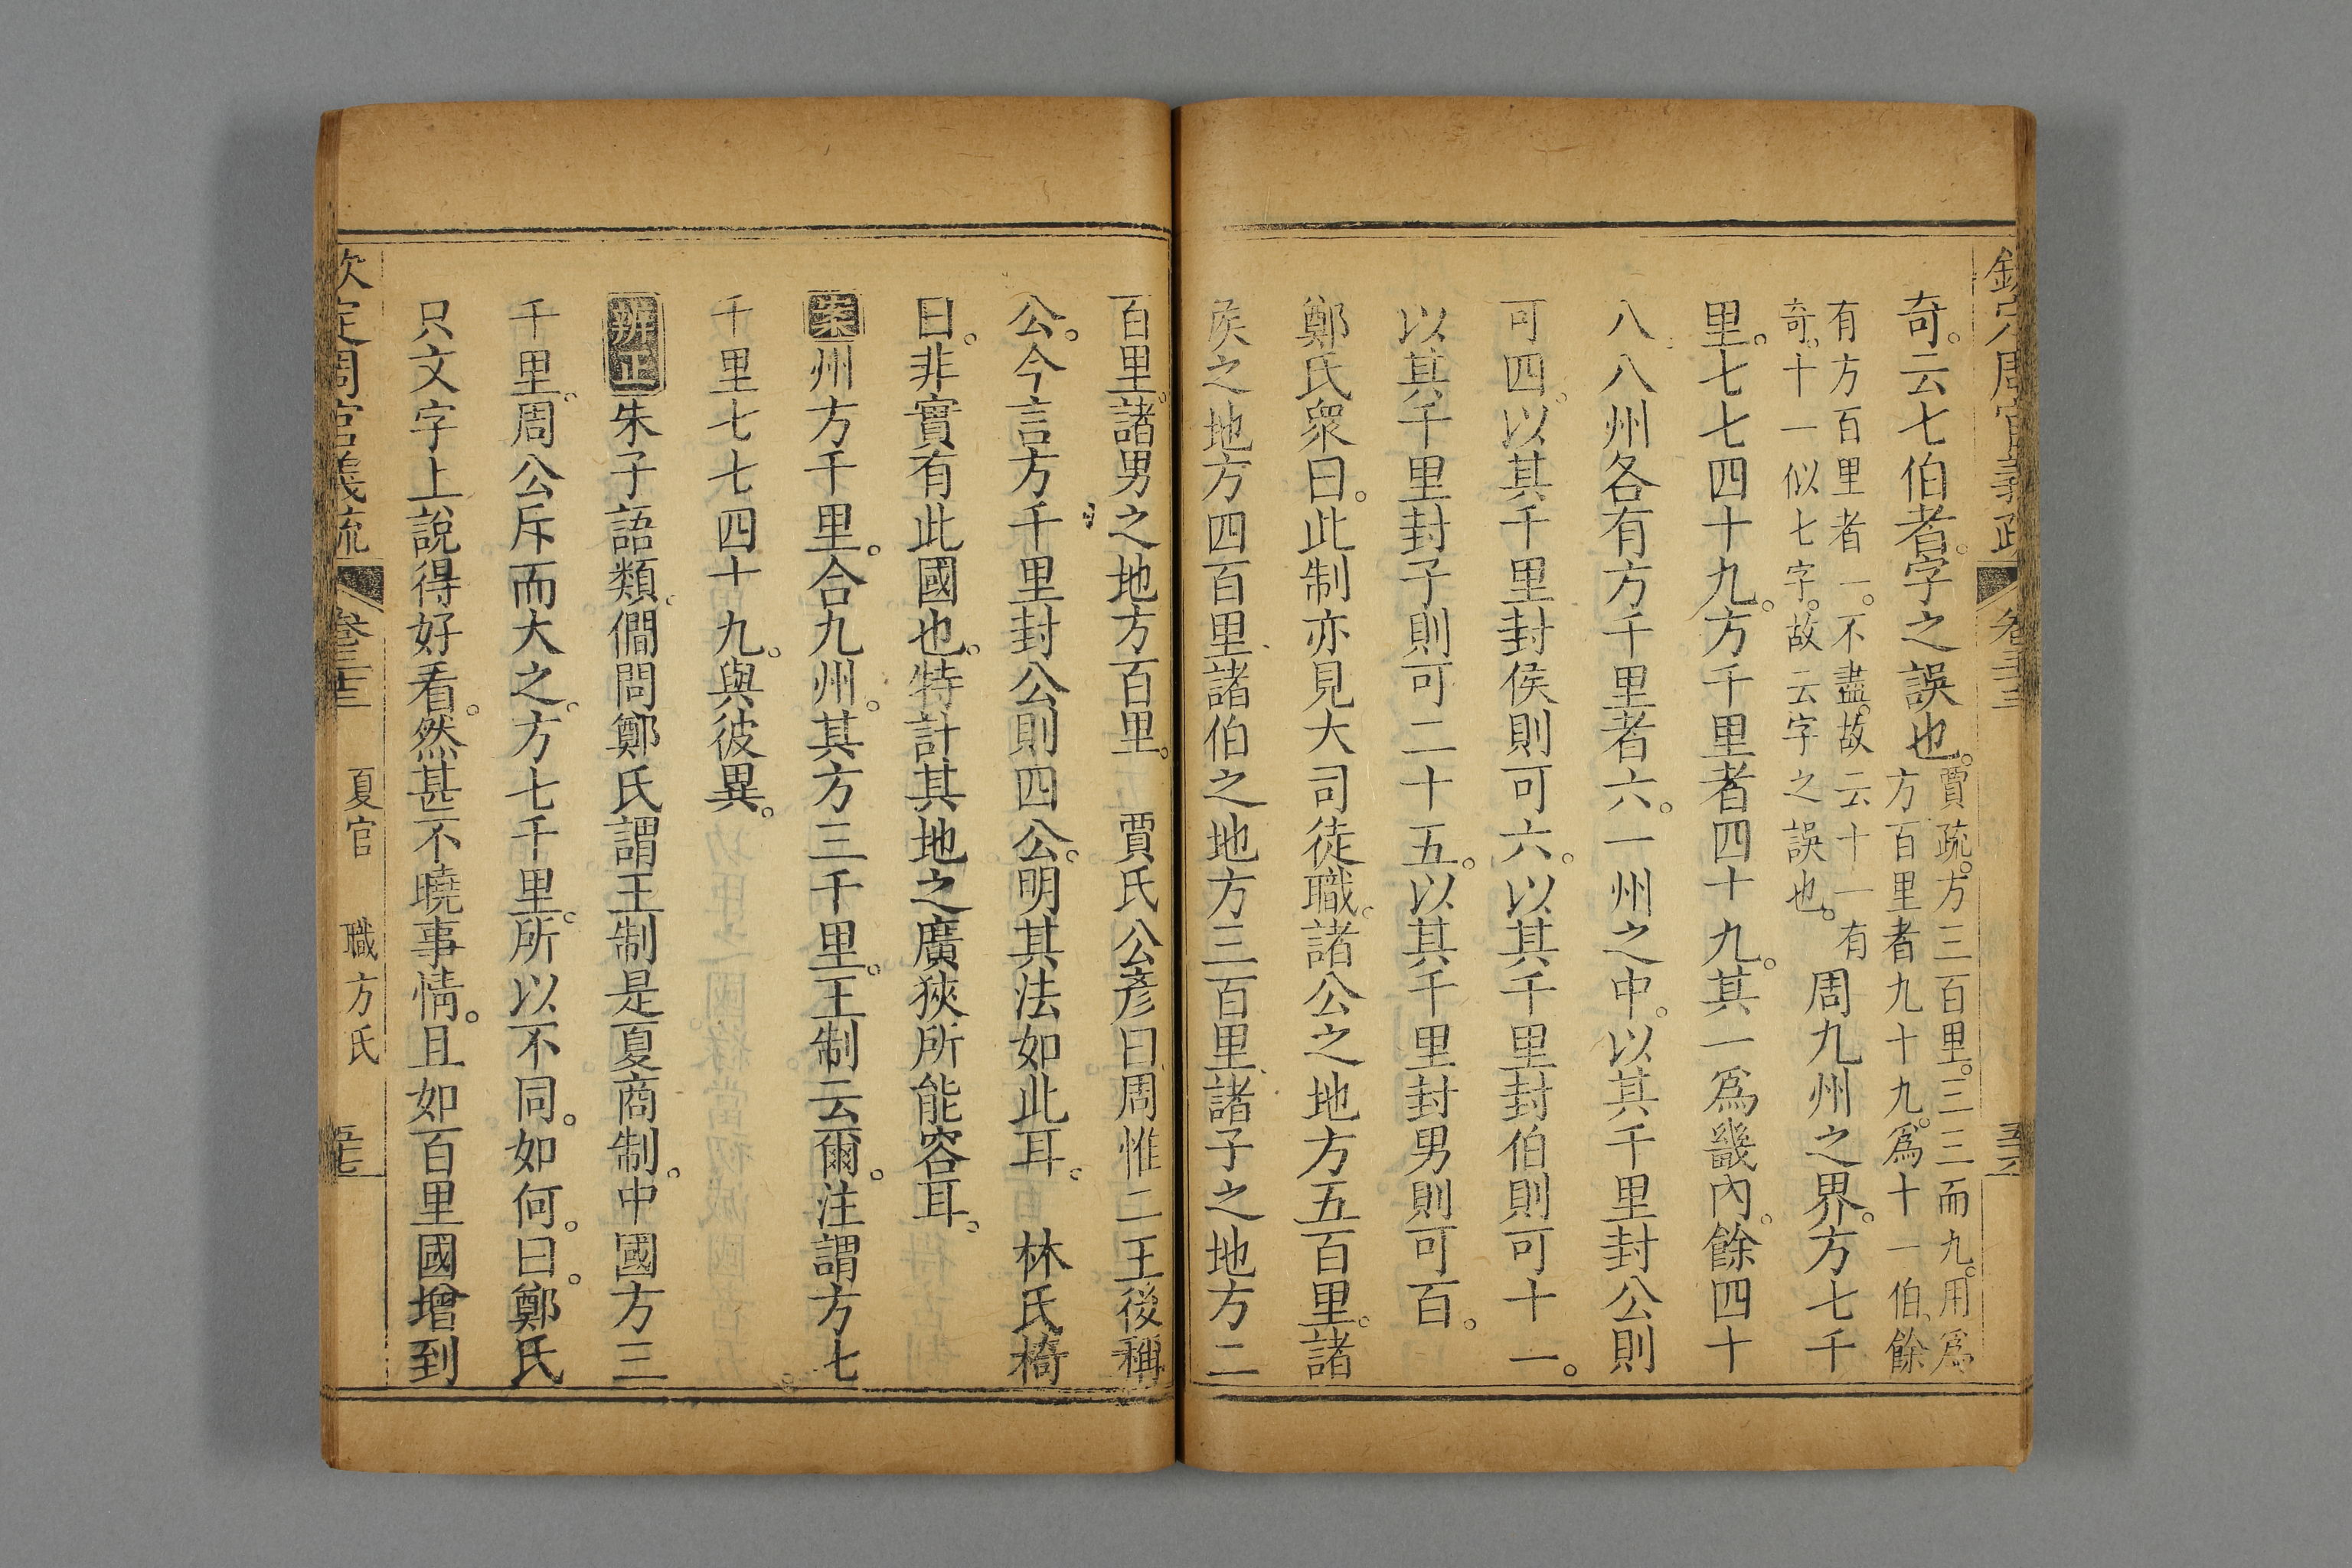 欽定周官義疏
奇。云七伯者。字之誤也。
賈疏。方三百里。三三而九。用爲
方百里者九十九。爲十一伯、餘
有方百里者一。不盡。故云十一有
奇。十一似七字。故云字之誤也。
周九州之界。方七千
里。七七四十九。方千里者四十九。其一爲畿內。餘四十
八八州各有方千里者六。一州之中。以其千里封公則
可四。以其千里封侯則可六。以其千里封伯則可十一。
以其千里封子則可二十五。以其千里封男則可百。
鄭氏衆曰。此制亦見大司徒職。諸公之地方五百里。諸
侯之地方四百里、諸伯之地方三百里、諸子之地方二
百里。諸男之地方百里。　賈氏公彥曰周惟二王後稱
公。今言方千里封公則四公。明其法如此耳。　林氏椅
曰。非實有此國也。特計其地之廣狹所能容耳。
案州方千里。合九州。其方三千里。王制云爾。注謂方七
千里七七四十九。與彼異。
辨正朱子語類。僩問鄭氏謂王制是夏商制。中國方三
千里。周公斥而大之。方七千里。所以不同。如何。曰。鄭氏
只文字上說得好看。然甚不曉事情。且如百里國增到
欽定周官義疏　卷三十三　夏官　職方氏